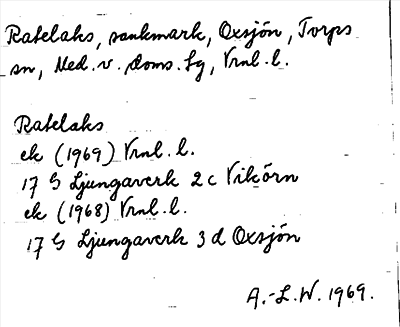 Ratelaks, sankmark, Oxsjön, Torps
sn, Med. v. doms. fg, Vrnl. l.
Ratelaks
ek (1969) Vrnl. l.
17 G Ljungaverk 2 c Vikörn
ek (1968) Vrnl. l.
17 G Ljungaverk 3 d Oxsjön
A.-L.W. 1969.